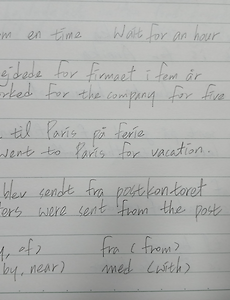 en time Wait for an hour
ejdede for firmaet i fem år
rked for the company for five
til Paris på ferie
went to Paris for vacation.
blev sendt fra postkontoret
ers were sent from the post
y, of) fra (from)
by, near) med (with)